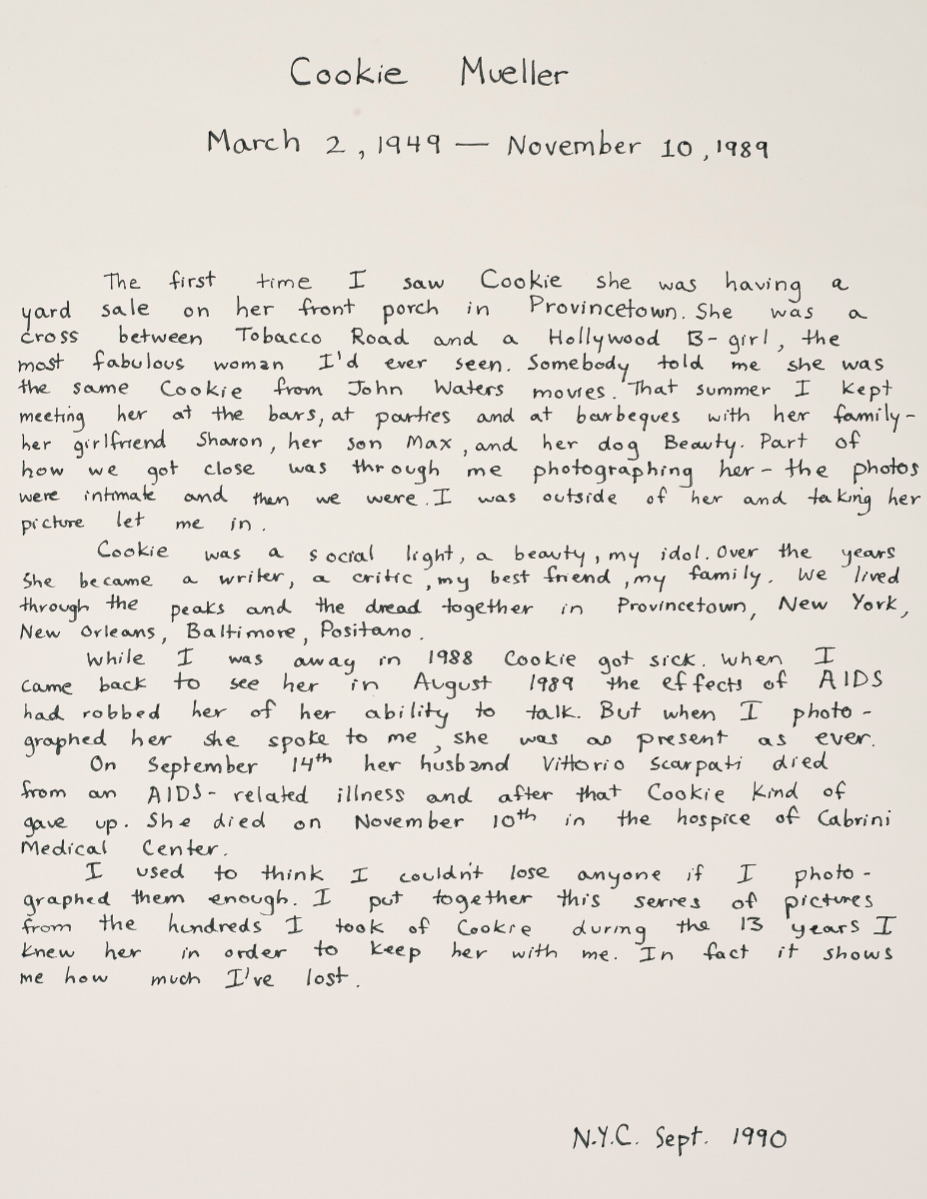 Cookie Mueller
March 2, 1949 — November 10, 1989
The first time I saw Cookie she was having a
yard sale on her front porch in Provincetown. She was a
cross between Tobacco Road and a Hollywood B-girl, the
most fabulous woman I'd ever seen. Somebody told me she was
the same Cookie from John Waters movies. That summer I kept
meeting her at the bars, at parties and at barbeques with her family-
her girlfriend Sharon, her son Max, and her dog Beauty. Part of
how we got close was through me photographing her - the photos
were intimate and then we were. I was outside of her and taking her
picture let me in.
Cookie was a social light, a beauty, my idol. Over the years
She became a writer, a critic, my best friend, my family. We lived
through the peaks and the dread together in Provincetown, New York,
New Orleans, Baltimore, Positano.
While I was away in 1988 Cookie got sick. When I
came back to see her in August 1989 the effects of AIDS
had robbed her of her ability to talk. But when I photo-
graphed her she spoke to me, she was as present as ever.
On September 14th her husband Vittorio Scarpati died
from an AIDS-related illness and after that Cookie kind of
gave up. She died on November 10th in the hospice of Cabrini
Medical Center.
I used to think I couldn't lose anyone if I photo-
graphed them enough. I put together this series of pictures
from the hundreds I took of Cookie during the 13 years I
knew her in order to keep her with me. In fact it shows
me how much I've lost.
N.Y.C. Sept. 1990